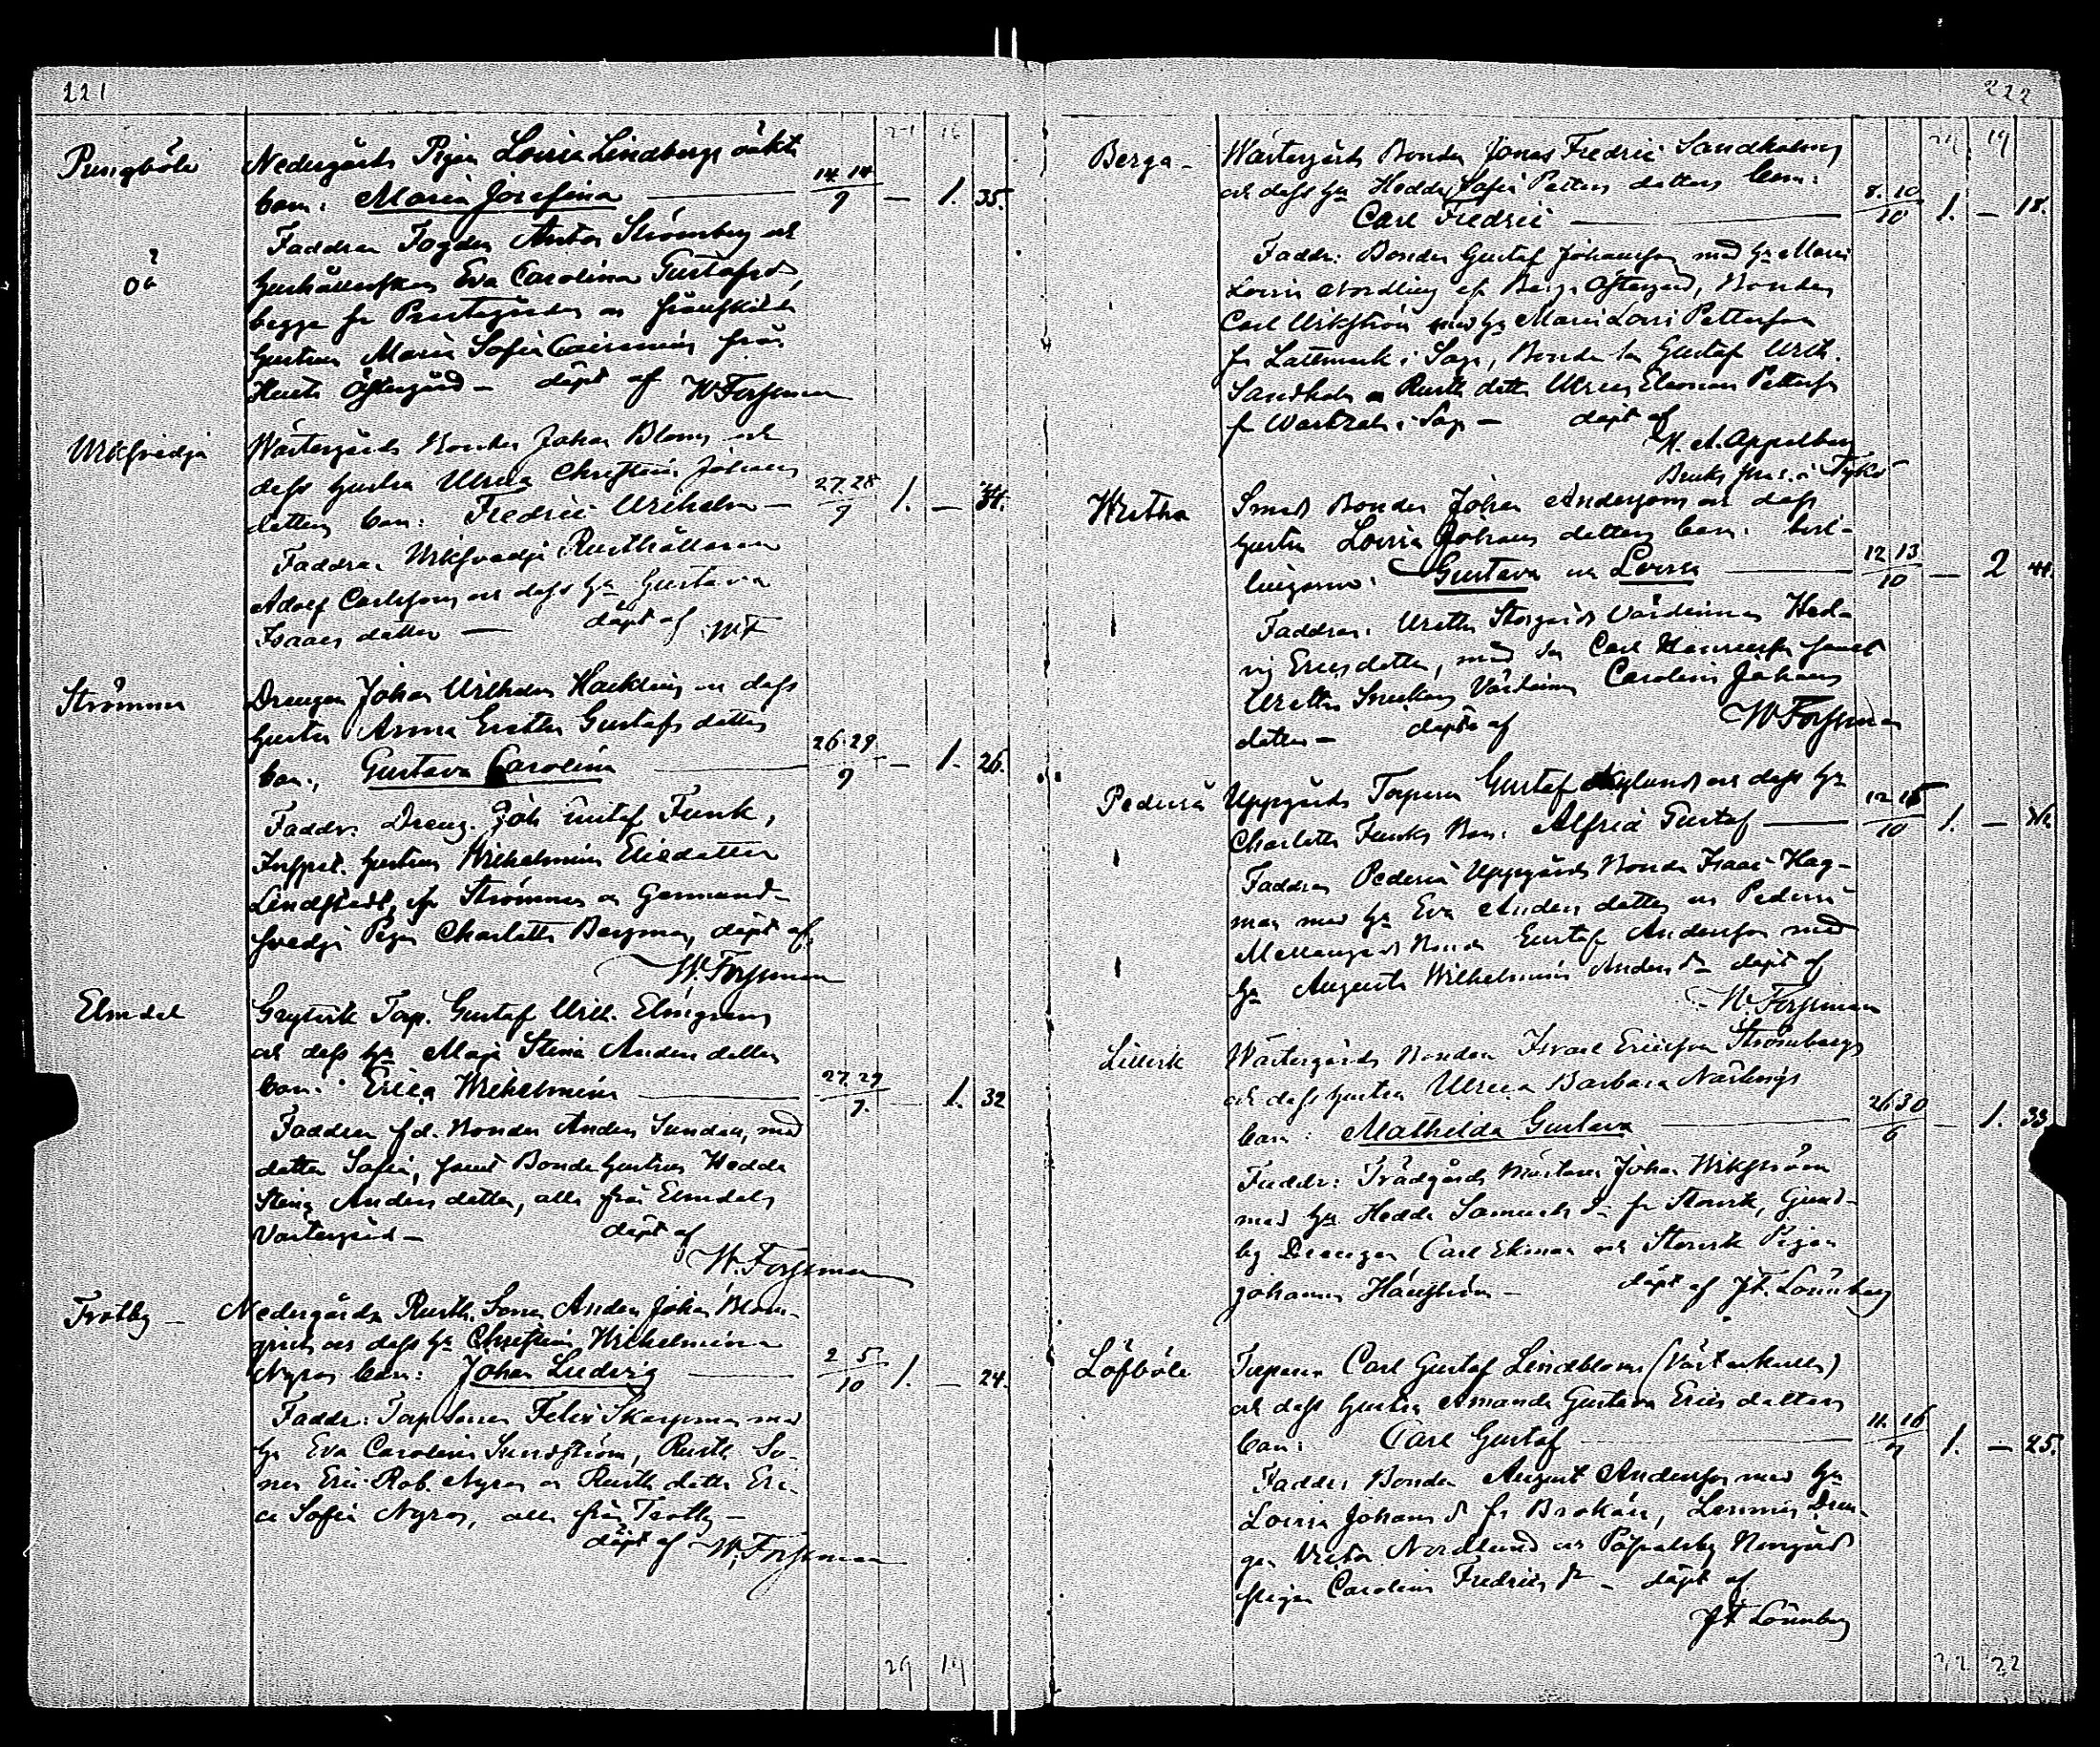 221
21 16
Pungböle Nedergårds Pigan Lovisa Lindbergs oäkta
barn: Maria Josefina 14. 14/9 — 1. 35.
Faddrar Fogden Anton Strömberg och
Oä Hushållerskan Eva Carolina Gustafsd,
begge fr Prestegården och frånskilda
hustrun Maria Sofia från
Östergård — döpt af W Forssman
Wikfvedja Wästergårds Bonden Johan Bloms och
dess hustru Ulrica Christina Johans
dotters barn: Fredric Wilhelm — 27. 28/9 1. — 34.
Faddrar Wikfvedja Rusthållaren
Adolf Carlsson och dess hu Gustava
Isaacs dotter — döpt af W.F.
Strömma Drengen Johan Wilhelm Hacklin och dess
hustru Anna Greta Gustafs dotters
barn, Gustava Carolina 26. 29/9 — 1. 26.
Faddr. Dreng. Joh Gustaf Funk,
Inspect. hustrun Wilhelmina Ericdotter
Lindstedt, fr Strömma och Germund-
svedja Pigan Charlotta Bergman, döpt af
W. Forssman
Elmdal Torp. Gustaf Wilh. Elmgrens
och dess hu Maja Stina Anders dotters
barn: Erica Wilhelmina 27. 29/9. — 1. 32
Faddrar f.d. Bonden Anders Sundén, med
dotter Sofia, samt Bonde hustrun Hedda
Stina Anders dotter, alla från Elmdals
Västergård — döpt af
W. Forssman
Trotby — Nedergårds Rusth. Sonen Anders Johan Blom-
qvists och dess hu Christina Wilhelmina
Nyroos barn: Johan Ludvig 2 5/10 1. — 24.
Faddr: Torp Sonen Felix Skarpman med
hu Eva Carolina Sundström, Rusth. So-
nen Eric Rob. Nyroos och Rusth dotter Eri-
ca Sofia Nyroos, alla från Trotby —
döpt af W. Forssman
29 19
222
29 19
Berga — Wästergårds Bonden Jonas Fredric Sandholms
och dess hu Hedda Sofia Petters dotters barn:
Carl Fredric 8. 10/10 1. — 18.
Faddr: Bonden Gustaf Johansson med hu Maria
Lovisa Nordling fr Berga Östergård, Bonden
Carl Wikström med hu Maria Lovisa Pettersson
fr Lattmark i Sagu, Bonde son Gustaf Wilh.
Sandholm och Rusth dotter Ulrica Eleonora Pettersson
fr i Sagu — döpt af
H. A. Appelberg
Bruks Pred. i Tykö
Wretha Smeds Bonden Johan Anderssons och dess
hustru Lovisa Johans dotters barn: tvil-
lingarna: Gustava och Lovisa 12 13/10 — 2 44.
Faddrar: Wretha Storgårds Värdinnan Hed-
vig Ericsdotter, med son Carl Henricsson samt
Wretha Smedens Värdinna Carolina Johans
dotter — döpta af W Forssman
Pederså Uppgårds Torparen Gustaf Nylunds och dess hu
Charlotta Funks barn: Alfred Gustaf 12 15/10 1. —
Faddrar Pederså Uppgårds Bonden Isaac Hag-
man med hu Eva Anders dotter och Pederså
Mellangårds Bonden Gustaf Andersson med
hu Augusta Wilhelmina Anders dr — döpt af
W. Forssman
Lillvik Wästergårds Bonden Israel Ericsson Strömbergs
och dess hustru Ulrica Barbara Närlings
barn: Mathilda Gustava 26 30/6 — 1. 33.
Faddr: Trädgårds Mästaren Johan Wikström
med hu Hedda Samuels dr fr Storvik,
by Drengen Carl Ekman och Storvik Pigan
Johanna — döpt af Jt. Lönnberg
Löfböle Torparen Carl Gustaf Lindbloms (Västerkulla)
och dess hustru Amanda Gustava Erics dotters
barn: Carl Gustaf 11. 16/9 1. — 25.
Faddr: Bonden August Andersson med hu
Lovisa Johans dr fr Brokärr, Lemnäs Dren-
gen Victor Nordlund och Påpalsby Norrgård
pigan Carolina Fredrics dr — döpt af
Jt. Lönnberg
32 22